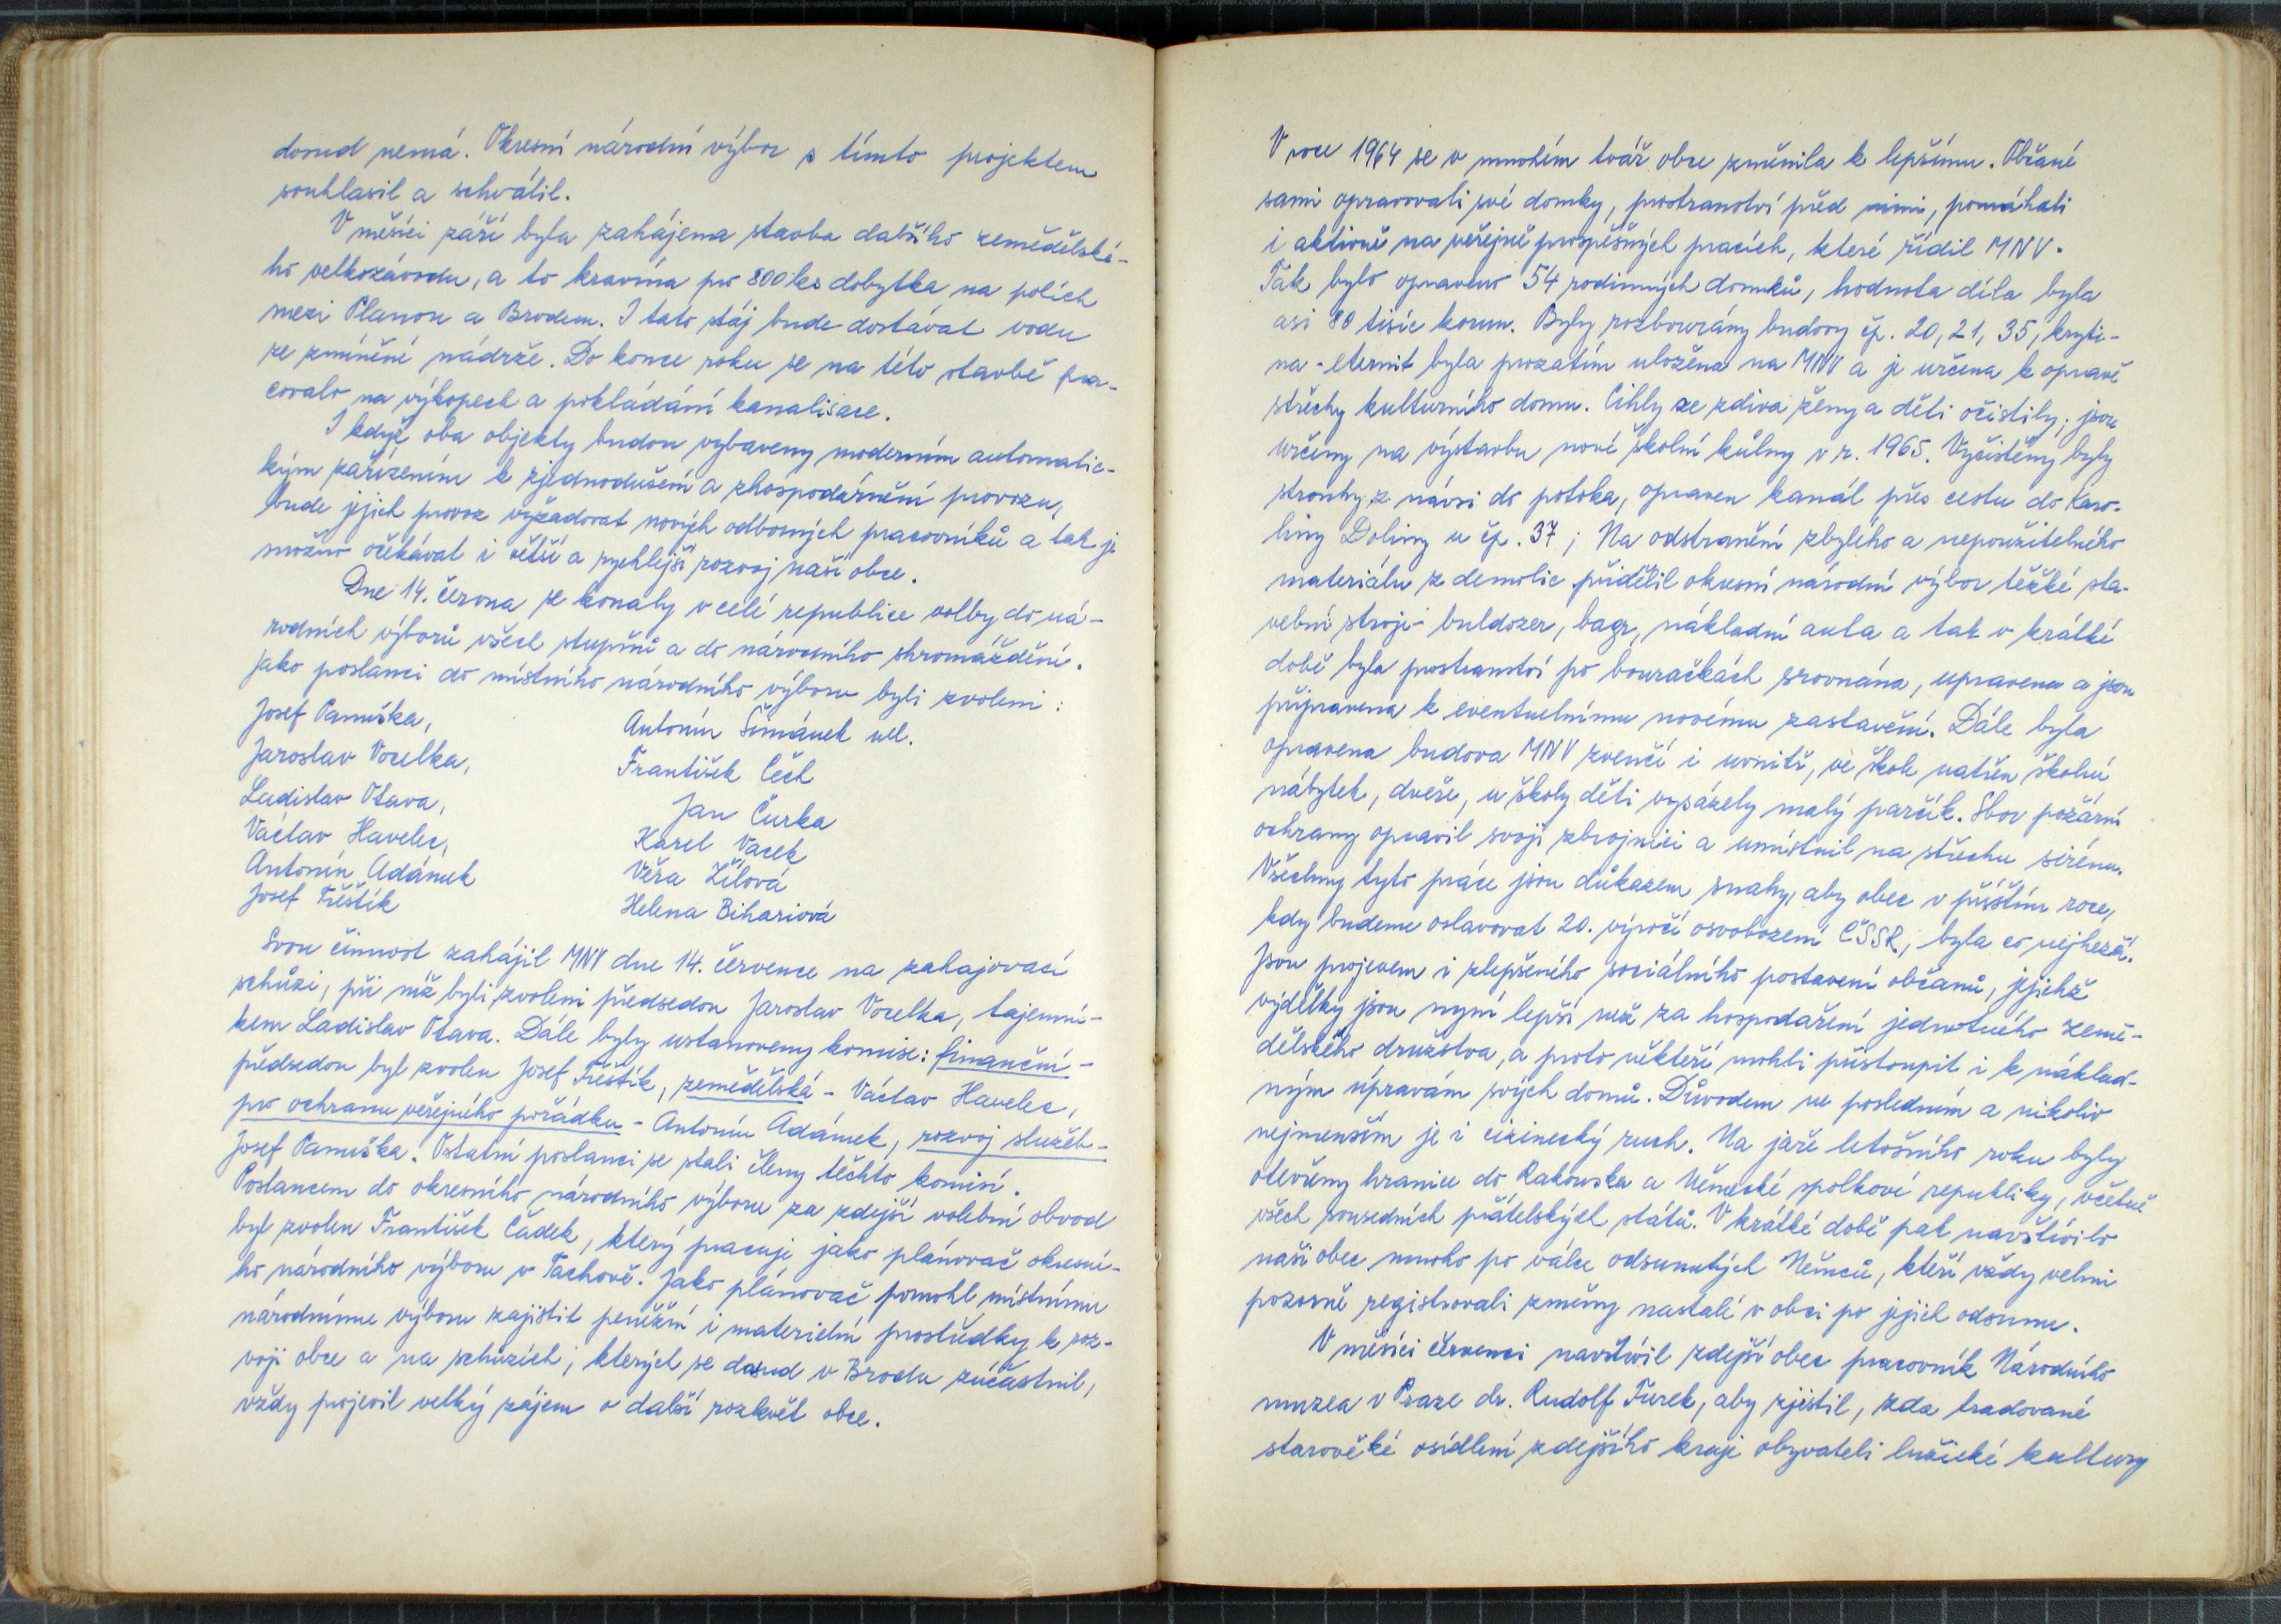 dosud nemá. Okresní národní výbor s tímto projektem
souhlasil a schválil.
V měsíci září byla zahájena stavba dalšího zemědělské-
ho velkozávodu, a to kravína pro 800 ks dobytka na polích
mezi Planou a Brodem. I tato stáj bude dostávat vodu
ze zmíněné nádrže. Do konce roku se na této stavbě pra-
covalo na výkopech a pokládání kanalisace.
I když oba objekty budou vybaveny moderním automatic-
kým zařízením k zjednodušení a zhospodárnění provozu,
bude jejich provoz vyžadovat nových odborných pracovníků a tak je
možno očekávat i větší a rychlejší rozvoj naší obce.
Dne 14. června se konaly v celé republice volby do ná-
rodních výborů všech stupňů a do národního shromáždění.
Jako poslanci do místního národního výboru byli zvoleni:
Josef Panuška, Antonín Šimánek ml.
Jaroslav Vocelka, František Čech
Ladislav Otava, Jan Čurka
Václav Havelec, Karel Vacek
Antonín Adámek Věra Žílová
Josef Třeštík Helena Bihariová
Svou činnost zahájil MNV dne 14. července na zahajovací
schůzi, při níž byli zvoleni předsedou Jaroslav Vocelka, tajemní-
kem Ladislav Otava. Dále byly ustanoveny komise: finanční -
předsedou byl zvolen Josef Třeštík, zemědělská - Václav Havelec,
pro ochranu veřejného pořádku - Antonín Adámek, rozvoj služeb -
Josef Panuška. Ostatní poslanci se stali členy těchto komisí.
Poslancem do okresního národního výboru za zdejší volební obvod
byl zvolen František Čádek, který pracuje jako plánovač okresní-
ho národního výboru v Tachově. Jako plánovač pomohl místnímu
národnímu výboru zajistit peněžní i materielní prostředky k roz-
voji obce a na schůzích, kterých se dosud v Brodu zúčastnil,
vždy projevil velký zájem o další rozkvět obce.
V roce 1964 se v mnohém tvář obce změnila k lepšímu. Občané
sami opravovali své domky, prostranství před nimi, pomáhali
i aktivně na veřejně prospěšných pracích, které řídil MNV.
Tak bylo opraveno 54 rodinných domků, hodnota díla byla
asi 80 tisíc korun. Byly rozbourány budovy čp. 20, 21, 35, kryti-
na - eternit byla prozatím uložena na MNV a je určena k opravě
střechy kulturního domu. Cihly ze zdiva ženy a děti očistily, jsou
určeny na výstavbu nové školní kůlny v r. 1965. Vyčištěny byly
strouhy z návsi do potoka, opraven kanál přes cestu do Karo-
liny Doliny u čp. 37; Na odstranění zbylého a nepoužitelného
materiálu z demolic přidělil okresní národní výbor těžké sta-
vební stroje - buldozer, bagr, nákladní auta a tak v krátké
době byla prostranství po bouračkách srovnána, upravena a jsou
připravena k eventuelnímu novému zastavění. Dále byla
opravena budova MNV zvenčí i uvnitř, ve škole natřen školní
nábytek, dveře, u školy děti vysázely malý parčík. Sbor požární
ochrany opravil svoji zbrojnici a umístnil na střechu sirénu.
Všechny tyto práce jsou důkazem snahy, aby obec v příštím roce,
kdy budeme oslavovat 20. výročí osvobození ČSSR, byla co nejhezčí.
Jsou projevem i zlepšeného sociálního postavení občanů, jejichž
výdělky jsou nyní lepší než za hospodaření jednotného země-
dělského družstva, a proto někteří mohli přistoupit i k náklad-
ným úpravám svých domů. Důvodem ne posledním a nikoliv
nejmenším je i cizinecký ruch. Na jaře letošního roku byly
otevřeny hranice do Rakouska a Německé spolkové republiky, včetně
všech sousedních přátelských států. V krátké době pak navštívilo
naši obec mnoho po válce odsunutých Němců, kteří vždy velmi
pozorně registrovali změny nastalé v obci po jejich odsunu.
V měsíci červenci navštívil zdejší obec pracovník Národního
muzea v Praze dr. Rudolf Turek, aby zjistil, zda tradované
starověké osídlení zdejšího kraje obyvateli lužické kultury